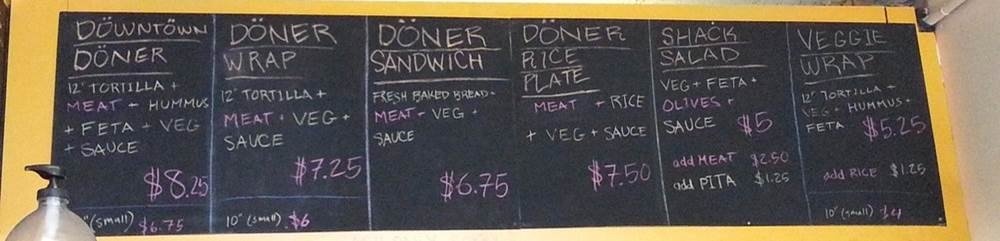 DÖWNTÖWN
DÖNER
12" TORTILLA +
MEAT + HUMMUS
+ FETA + VEG
+ SAUCE
$8.25
" (small) $6.75
DÖNER
WRAP
12" TORTILLA +
MEAT + VEG +
SAUCE
$7.25
10" (small) $6
DÖNER
SANDWICH
FRESH BAKED BREAD +
MEAT + VEG +
SAUCE
$6.75
DÖNER
RICE
PLATE
MEAT + RICE
+ VEG + SAUCE
$7.50
SHACK
SALAD
VEG + FETA +
OLIVES +
SAUCE $5
add MEAT $2.50
add PITA $1.25
VEGGIE
WRAP
12" TORTILLA +
VEG + HUMMUS +
FETA $5.25
add RICE $1.25
10" (small) $4